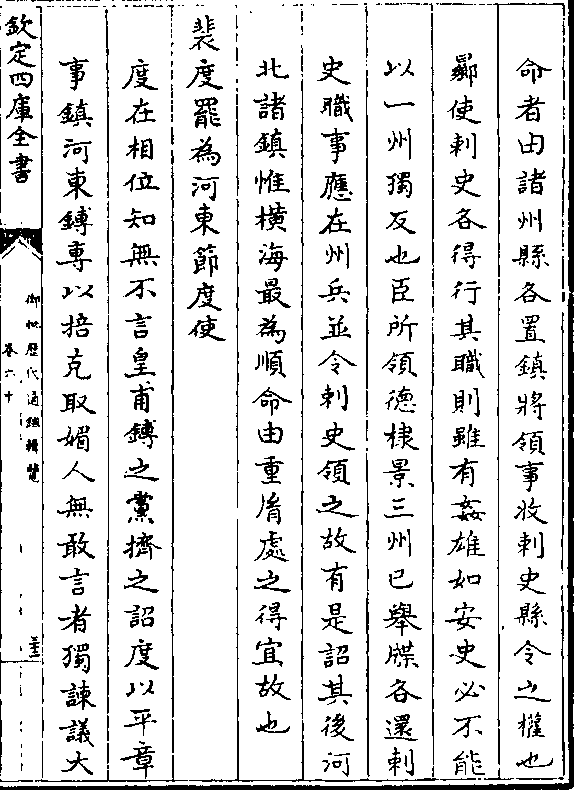 命者由諸州縣各置鎮將領事收刺史縣令之權也
曏使刺史各得行其職則雖有姦雄如安史必不能
以一州獨反也臣所領德棣景三州已舉牒各還刺
史職事應在州兵並令刺史領之故有是詔其後河
北諸鎮惟橫海最為順命由重𦙍處之得宜故也
裴度罷為河東節度使
度在相位知無不言皇甫鎛之黨擠之詔度以平章
事鎮河東鎛專以掊克取媚人無敢言者獨諫議大
欽定四庫全書
御批歷代通鑑輯覽
卷六十